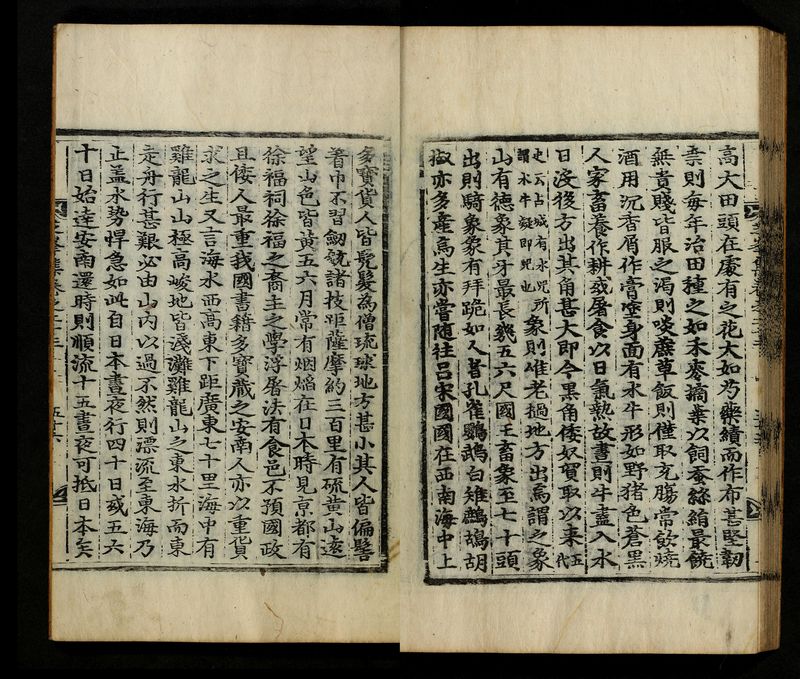 高大田頭在處有之花大如芍藥績而作布甚堅韌
桑則每年治田種之如禾麥摘葉以飼蚕絲絹最饒
無貴賤皆服之渴則啖蔗草飯則僅取充膓常飲燒
酒用沉香屑作膏塗身面有水牛形如野猪色蒼黑
人家畜養作耕或屠食以日氣熱故晝則牛盡入水
日沒後方出其角甚大即今黑角倭奴貿取以来五代
史云占城有水兕所謂水牛疑即兕也象則惟老撾地方出焉謂之象
山有德象其牙最長幾五六尺國王畜象至七十頭
出則騎象象有拜跪如人者孔雀鸚鵡白雉鷓鴣胡
椒亦多產焉生亦嘗隨往呂宋國國在西南海中上
多寶貨人皆髠髮為僧琉球地方甚小其人皆偏髻
着巾不習劒銃諸技距薩摩約三百里有硫黃山遠
望山色皆黃五六月常有烟焰在日本時見京都有
徐福祠徐福之裔主之學浮屠法有食邑不預國政
且倭人最重我國書籍多寶藏之安南人亦以重貨
求之生又言海水西高東下距廣東七十里海中有
雞龍山山極高峻地皆淺灘雞龍山之東水折而東
走舟行甚艱必由山内以過不然則漂流至東海乃
止盖水勢悍急如此自日本晝夜行四十日或五六
十日始達安南還時則順流十五晝夜可抵日本矣